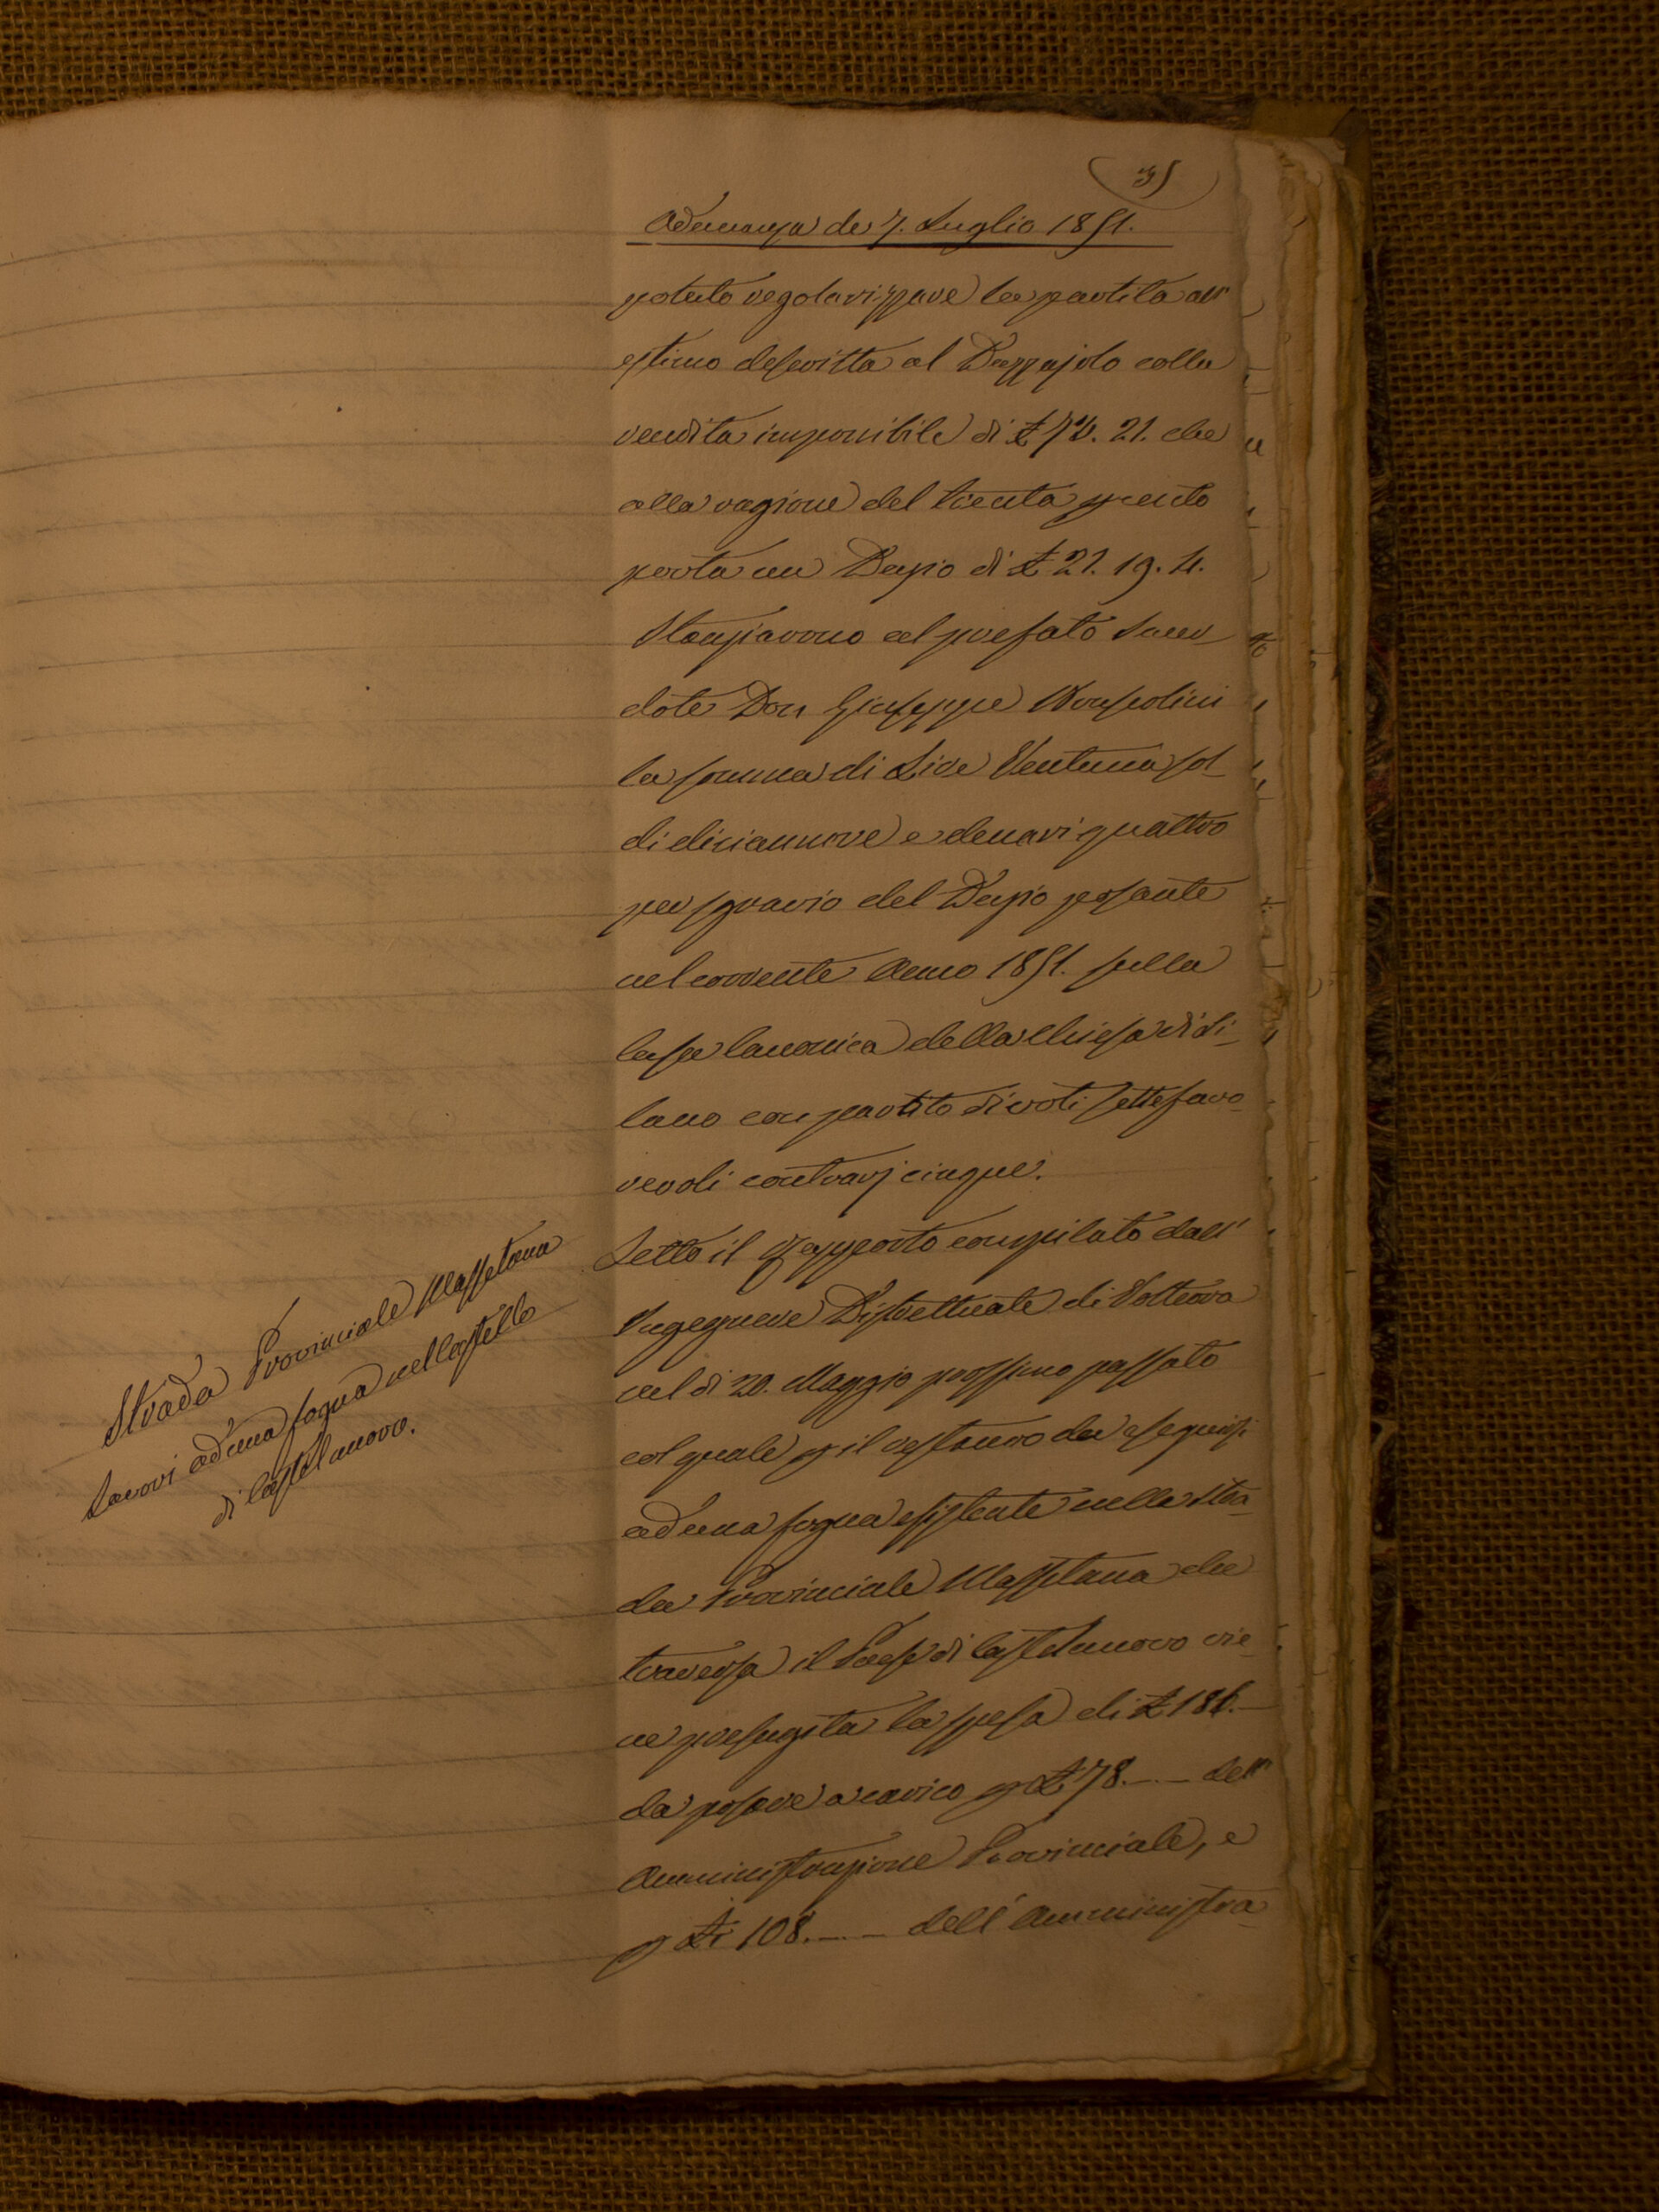 35
Adunanza de 7. Luglio 1851.
potuto regolarizzare la partita all'
estimo descritta al Dazzajolo colla
rendita imponibile di £ 73. 21. che
alla ragione del trenta p cento
porta un Dazio di £ 21. 19. 4.
Stanziarono al prefato Sacer
dote Don Giuseppe
la somma di Lire Ventuna sol
di diciannove e denari quattro
per sgravio del Dazio posante
nel corrente Anno 1851. sulla
Casa Canonica della Chiesa di Si
lano con partito di voti sette favo
revoli contrarj cinque.
Strada Provinciale Massetana
Lavori ad una fogna nel Castello
di Castelnuovo.
Letto il Rapporto compilato dall'
Ingegnere Distrettuale di Volterra
nel dì 20. Maggio prossimo passato
col quale p il restauro da eseguirsi
ad una fogna esistente nella Stra
da Provinciale Massetana che
traversa il Paese di Castelnuovo vie
ne presagita la spesa di £ 186.—
da posare a carico p £ 78. — — dell'
Amministrazione Provinciale, e
p £i 108. — — dell' Amministra